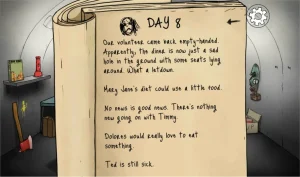 DAY 8
Our volunteer came back empty-handed.
Apparently, the diner is now just a sad
hole in the ground with some seats lying
around. What a letdown.
Mary Jane's diet could use a little food.
No news is good news. There's nothing
new going on with Timmy.
Dolores would really love to eat
something.
Ted is still sick.